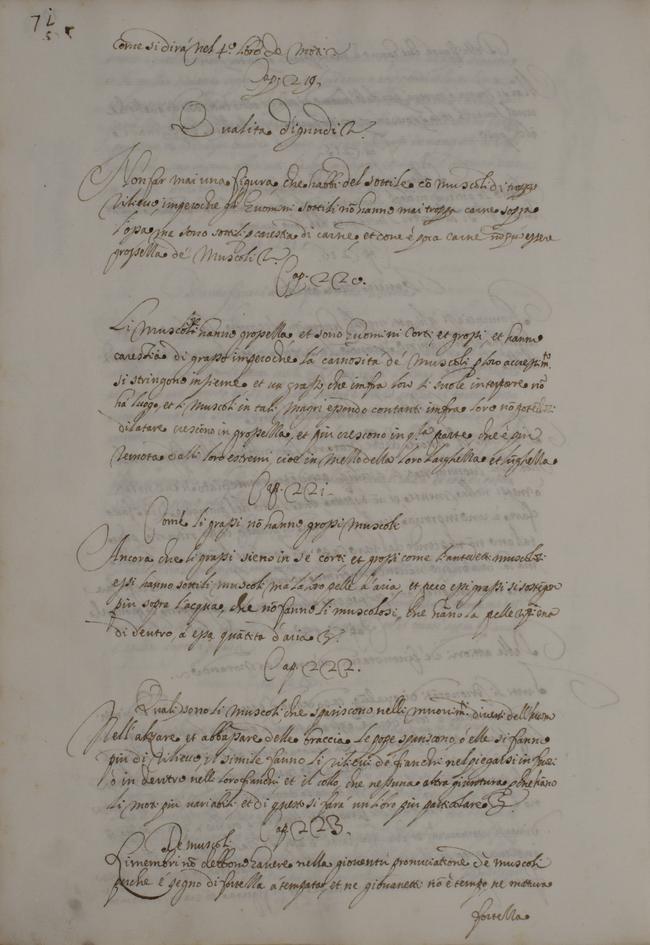 71
5
come si dirà nel 4.º libro de
Cap. 219.
Qualita d'ignudi.
Non far mai una figura, che habbi del sottile cō muscoli di troppo
rilievo, imperoche gl'huomini sottili nō hanno mai troppa carne sopra
l'ossa, ma sono sottili p carestia di carne, et dove è poca carne nō può essere
grossezza de' Muscoli.
Cap. 220.
Li Muscoli hanno grossezza et sono huomini corti, et grossi, et hanno
carestia di grasso imperoche la carnosità de' Muscoli p loro
si stringono insieme et un grasso, che imfra loro si suole interporre nō
ha luogo, et li Muscoli in tali Magri essendo contanti imfra loro nō
dilatare crescono in grossezza, et più crescono in q.la parte che è più
remota dalli loro estremi, cioè in mezzo della loro larghezza et lūghezza
Cap. 221.
Come li grassi nō hanno grossi muscoli
Ancora che li grassi sieno in sè corti, et grossi come l'antedetti muscolosi
essi hanno sottili muscoli, mà la loro pelle d'aria, et però essi grassi si
più sopra l'acqua, che nō fanno li muscolosi, che hāno la pelle
di dentro, a essa quātità d'aria.
Cap. 222.
Quali sono li muscoli che spariscono nelli movim.ti diversi dell'huomo
Nell'alzare et abbassare delle braccia le poppe spariscono, ò elle si fanno
più di rilievo, il simile fanno li rilievi de fianchi nel piegarsi in fuori
ò in dentro nelli loro fianchi et il collo, che nessuna altra giuntura,
li moti più variabili et di questo si farà un libro più particolare
Cap. 223.
De muscoli
Li membri nō debbono havere nella gioventù pronuciatione dè muscoli
perche è segno di fortezza attempata, et ne giovanetti nō è tempo, ne matura
fortezza